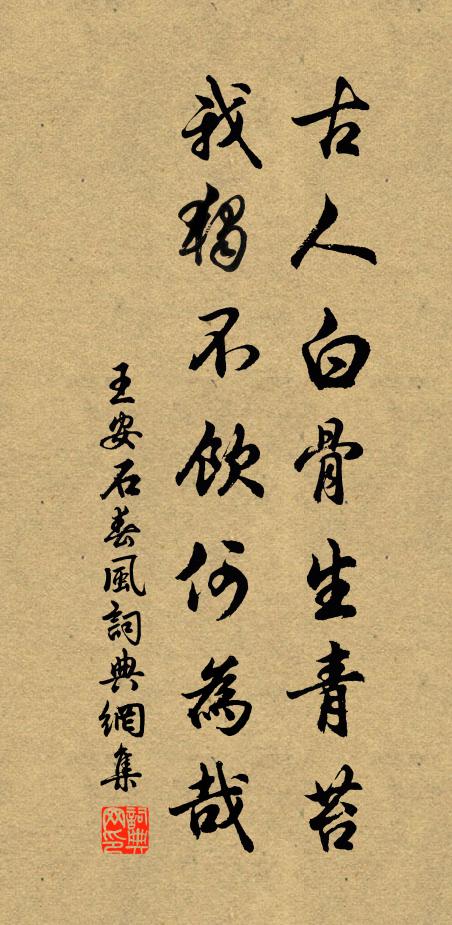 古人白骨生青苔
我獨不飲何為哉
王安石春風詞典網集
詞典網印